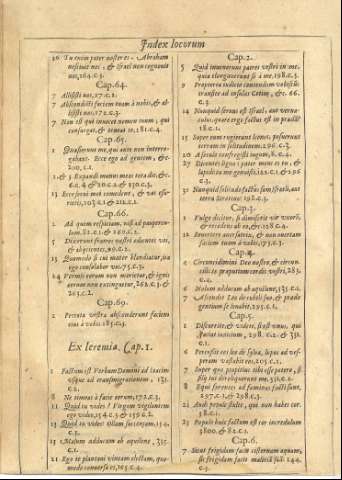 Index locorum
16 Tu enim pater noster es. Abraham
nescivit nos, & Israel non cognovit
nos, 264.c.3.
Cap.64.
7 Allisisti nos, 277.c.2.
7 Abscondisti faciem tuam à nobis, & al
lisisti nos, 172.c.3.
7 Non est qui invocet nomen tuum, qui
consurgat, & teneat te, 281.c.4.
Cap.65.
1 Quæsierunt me, qui ante non interro
gabant. Ecce ego ad gentem, &c.
200.c.1.
2. Expandi manus meas tota die, &c.
& 250.c.3.
13 Ecce servi mei comedent, & vos esu-
rietis, 103.c.1 & 212.c.1.
Cap.66.
2 Ad quem respiciam, nisi ad pauperco-
lum
5 Dixerunt fratres vestri odientes vos,
13 Quomodo si cui mater blandiatur, ita
ego consolabor vos, 75.c.3.
24 Vermis eorum non morietur, & ignis
eorum non extinguetur, 262.c.3. &
263.c.2.
Cap.69.
2 Peccata vestra absconderunt faciem
eius à vobis. 185.c.3.
Ex Ieremia. Cap.1.
2 Factum est Verbum Domini ad
usque ad transmigrationem, 131.
c.1.
8 Ne timeas à facie eorum, 172.c.3.
11 Quid tu vides? Virgam vigilantem
ego video, 154.c.3 & 156.c.2.
13 Quid tu vides? Ollam succensam, 154.
c.3.
15 Malum adducam ab aquilone, 135.
c.1.
21 Ego te plantavi vineam electam, quo-
modo conversa es, 105.c.4.
Cap.2.
5 Quid invenerunt patres vestri in me,
quia elongaverunt se à me. 198.c.3.
9 Propterea iudicio contendam vobiscū:
transite ad insulas Cetim, &c. 66.
c.3.
14 Nunquid servus est Israel, aut verna-
culus, quare ergo factus est in prædā?
18.c.1.
15 Super eum rugierunt leones, posuerunt
terram in solitudinem, 296.c.3.
20 A sæculo confregisti iugum, 8.c.4.
27 Dicentes ligno: pater meus es tu, &
lapidi: tu me genuisti, 121.c.1. & 196
c.3.
31 Nunquid solitudo factus sum Israeli, aut
terra serotina: 192.c.3.
Cap.3.
1 Vulgo dicitur, si dimiserit vir uxorē,
& recedens ab eo, &c. 128.c.4.
12 Revertere aversatrix, & non avertam
faciem meam à vobis, 173.c.3.
Cap.4.
4 Circumcidimini Deo nostro, & circum-
cidite præputium cordis vestri, 283.
c.2.
6 Malum adducam ab aquilone, 135.c.1.
7 Ascendit Leo de cubili suo, & prædo
gentium se levabit, 295.c.1.
Cap.5.
1 Discurrite, & videte, si est unus, qui
faciat iudicium, 298.c.2. & 331.
c.1.
6 Percussit eos leo de sylva, lupus ad ves-
peram vastabit eos, 205.c.1.
7 Super quo propitius tibi esse potero, fi-
lij tui dereliquerunt me, 331.c.1.
8 Equi fœminas ad fœminas facti sunt,
297.c.1, & 298.c.3.
21 Audi popule stulte, qui non habes cor.
58.c.1.
23 Populi huic factum est cor incredulum
3800. & 82.c.1.
Cap.6.
7 Sicut frigidam facit cisternam aquam:
sic frigidam facit malitiā suā. 244.
c.3.